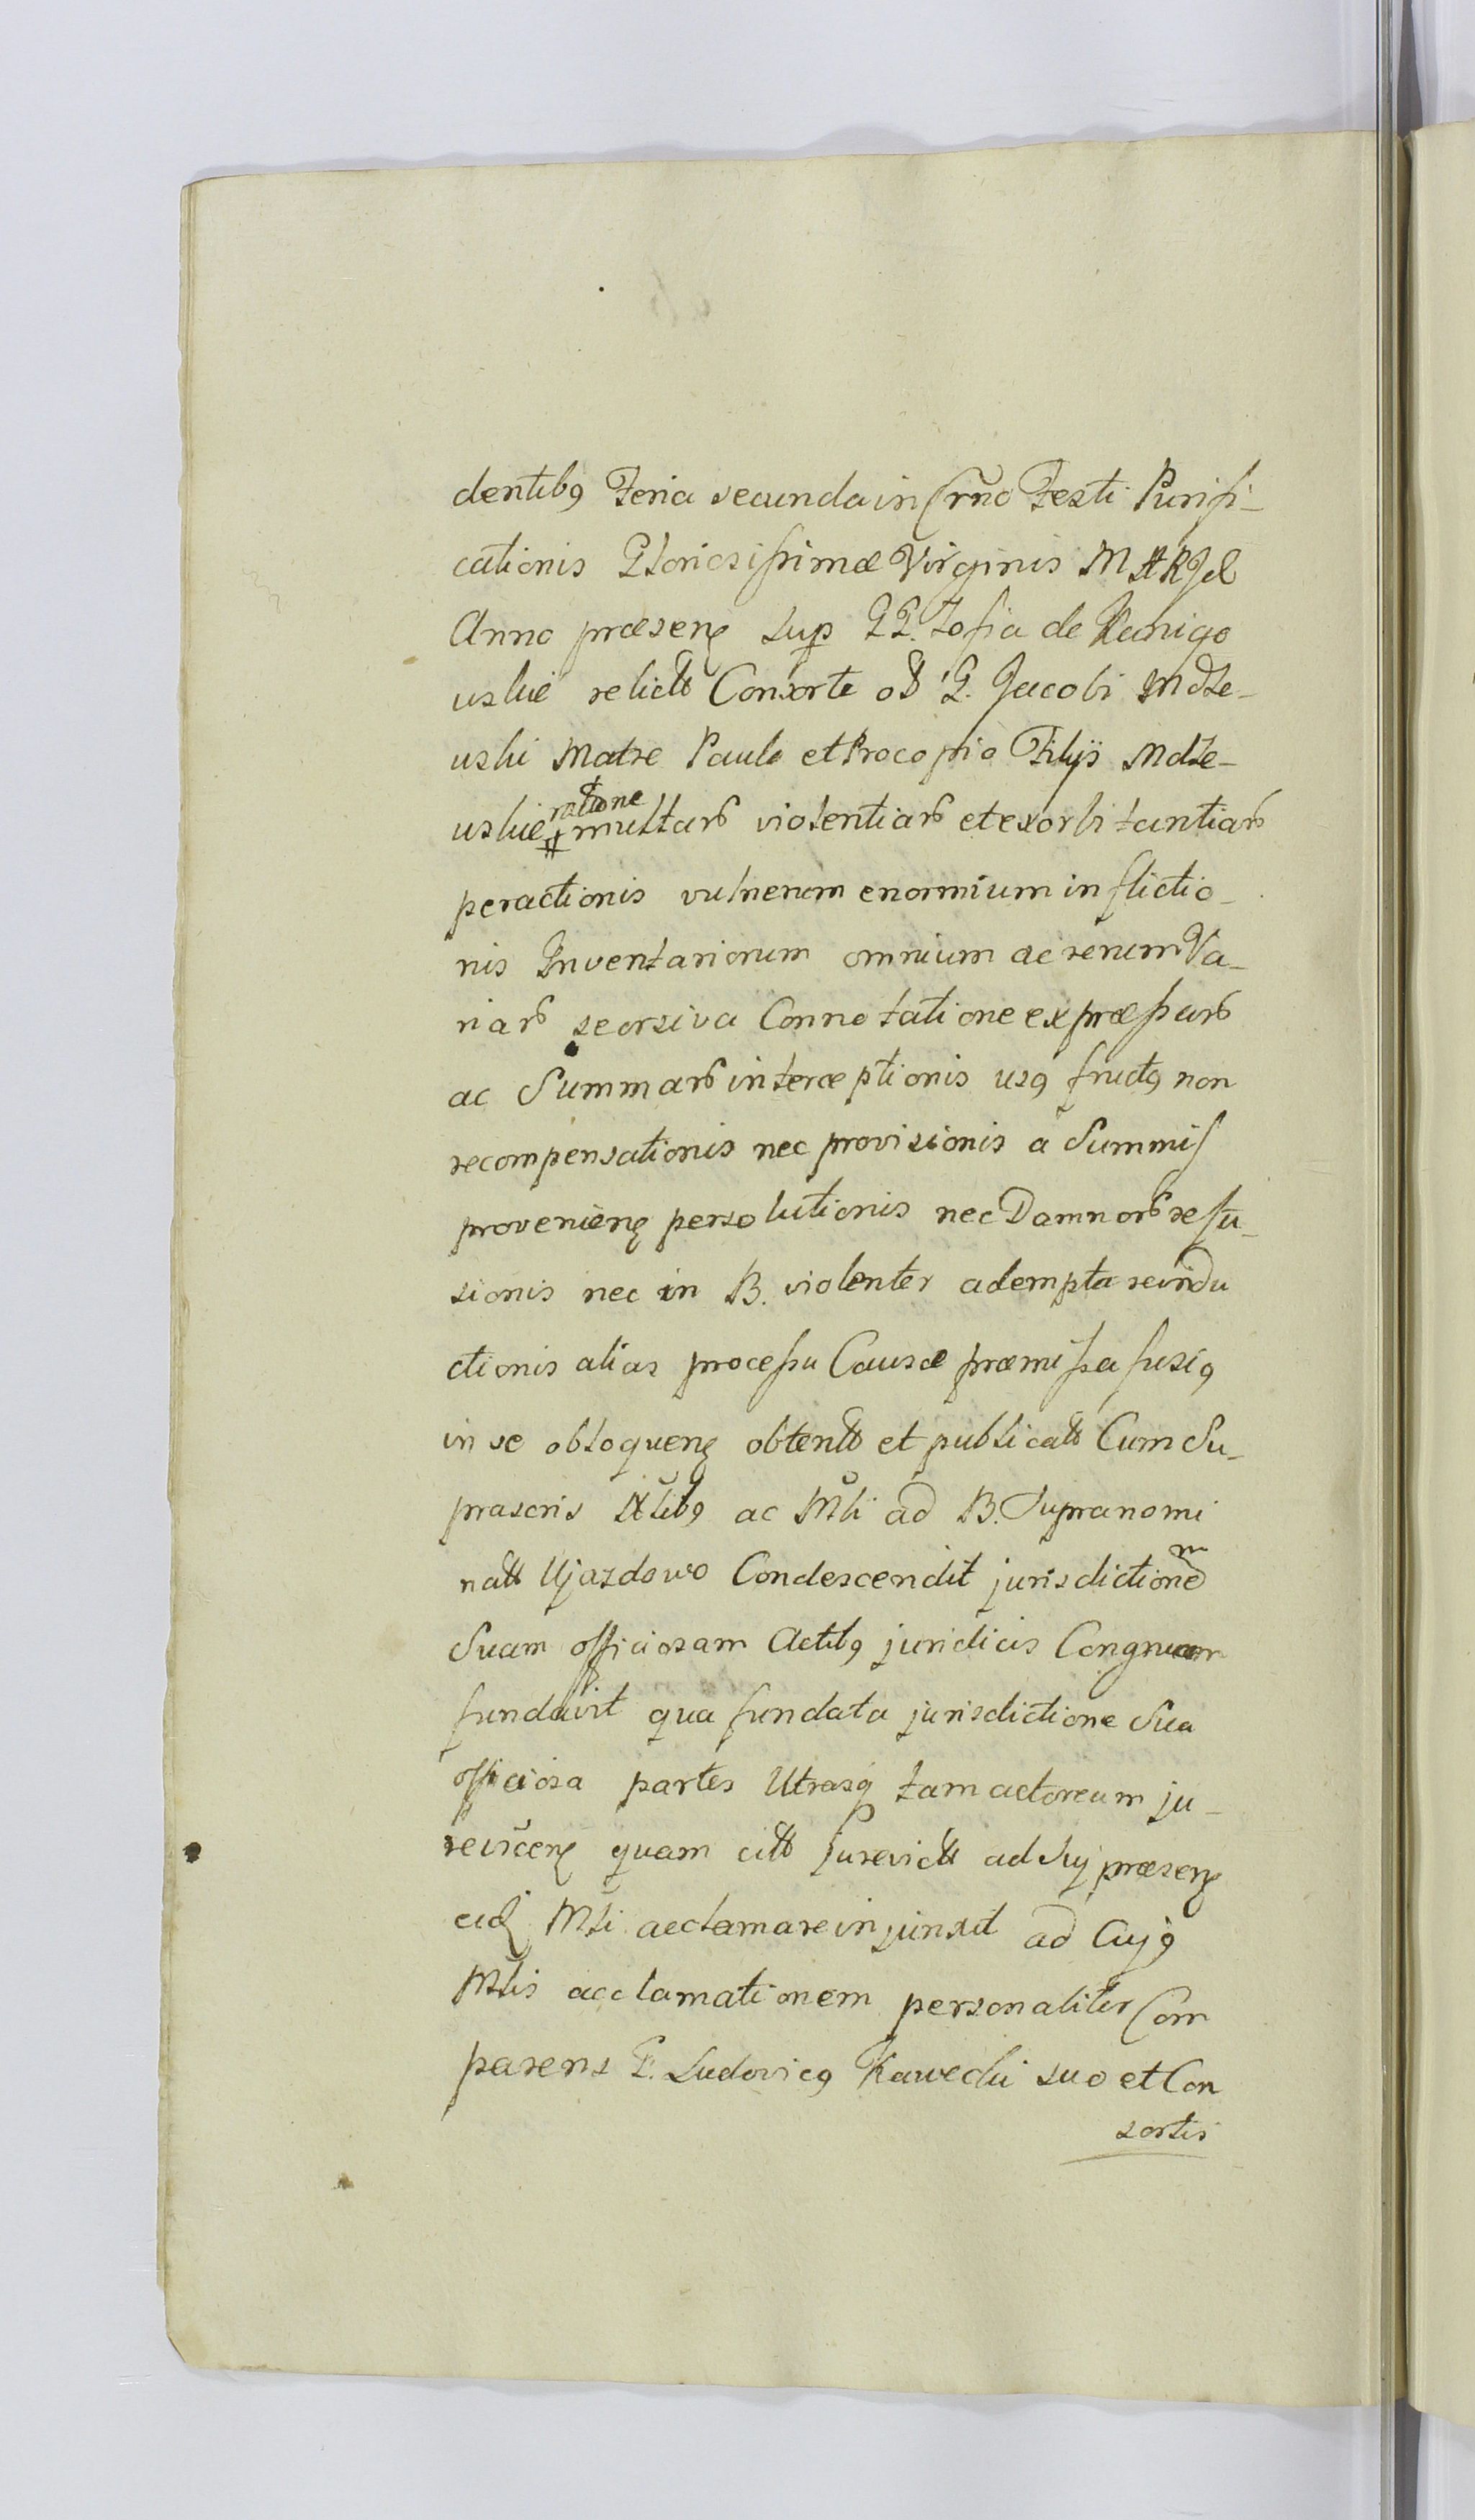 dentibꝰ Feria secunda in Crño Festi Purifi-
cationis Gloriosissimæ Virginis MARIÆ
Anno præsenꝭ sup GG. Zofia de Kunigo
uskie relictt Consorte oʟ G. Jacobi Mdze-
uski Matre Paulo et Procopio Filijs Mdze-
uskie ratione multarꝝ violentiarꝝ et exorbitantiarꝝ
peractionis vulnerum enormium inflictio-
nis Inventariorum omnium ac rerum Va-
riarꝝ seorsiva Connotatione expræssarꝝ
ac Summarꝝ interceptionis usꝰ fructꝰ non
recompensationis nec provisionis a Summis
provenienꝭ persolutionis nec Damnorꝝ refu-
sionis nec in B. violenter adempta reindu
ctionis alias processu Causæ præmissa fusiꝰ
in se obloquenꝭ obtentt et publicatt Cum Su-
prascris Nlibꝰ ac Mli ad B. Supranomi
natt Ujazdowo Condescendit jurisdictionem
Suam officiosam Actibꝰ juridicis Congruam
fundavit qua fundata jurisdictione Sua
officiosa partes Utrasqꝫ tam actoream ju-
revicenꝭ quam citt jurevictt ad Sui præsenꝭ
eidꝫ Mli acclamare injunxit ad Cujꝰ
Mlis acclamationem personaliter Com
parens G. Ludovicꝰ Kawecki suo et Con
sortis